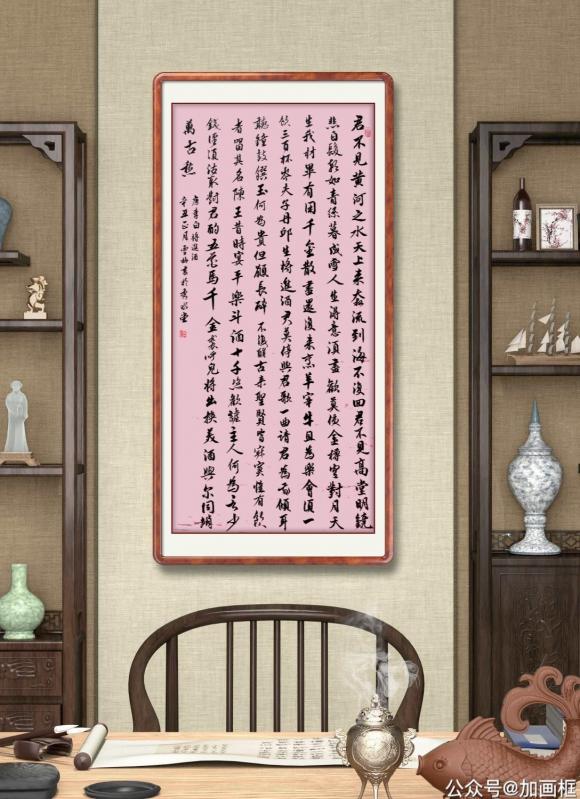 君不見黃河之水天上來奔流到海不復回君不見高堂明鏡
悲白髮朝如青絲暮成雪人生得意須盡歡莫使金樽空對月天
生我材畢有用千金散盡還復來烹羊宰牛且為樂會須一
飲三百杯岑夫子丹邱生將進酒君莫停與君歌一曲請君為我傾耳
聽鐘鼓饌玉何為貴但願長醉不復醒古來聖賢皆寂寞惟有飲
者留其名陳王昔時宴平樂斗酒十千恣歡謔主人何為言少
錢徑須沽取對君酌五花馬千金裘呼兒將出換美酒與爾同銷
萬古愁
唐李白將進酒
辛丑正月雪梅書於堂
公众号@加画框